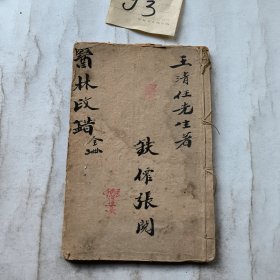 93
王清任先生著
鉄張
醫林改錯
全冊